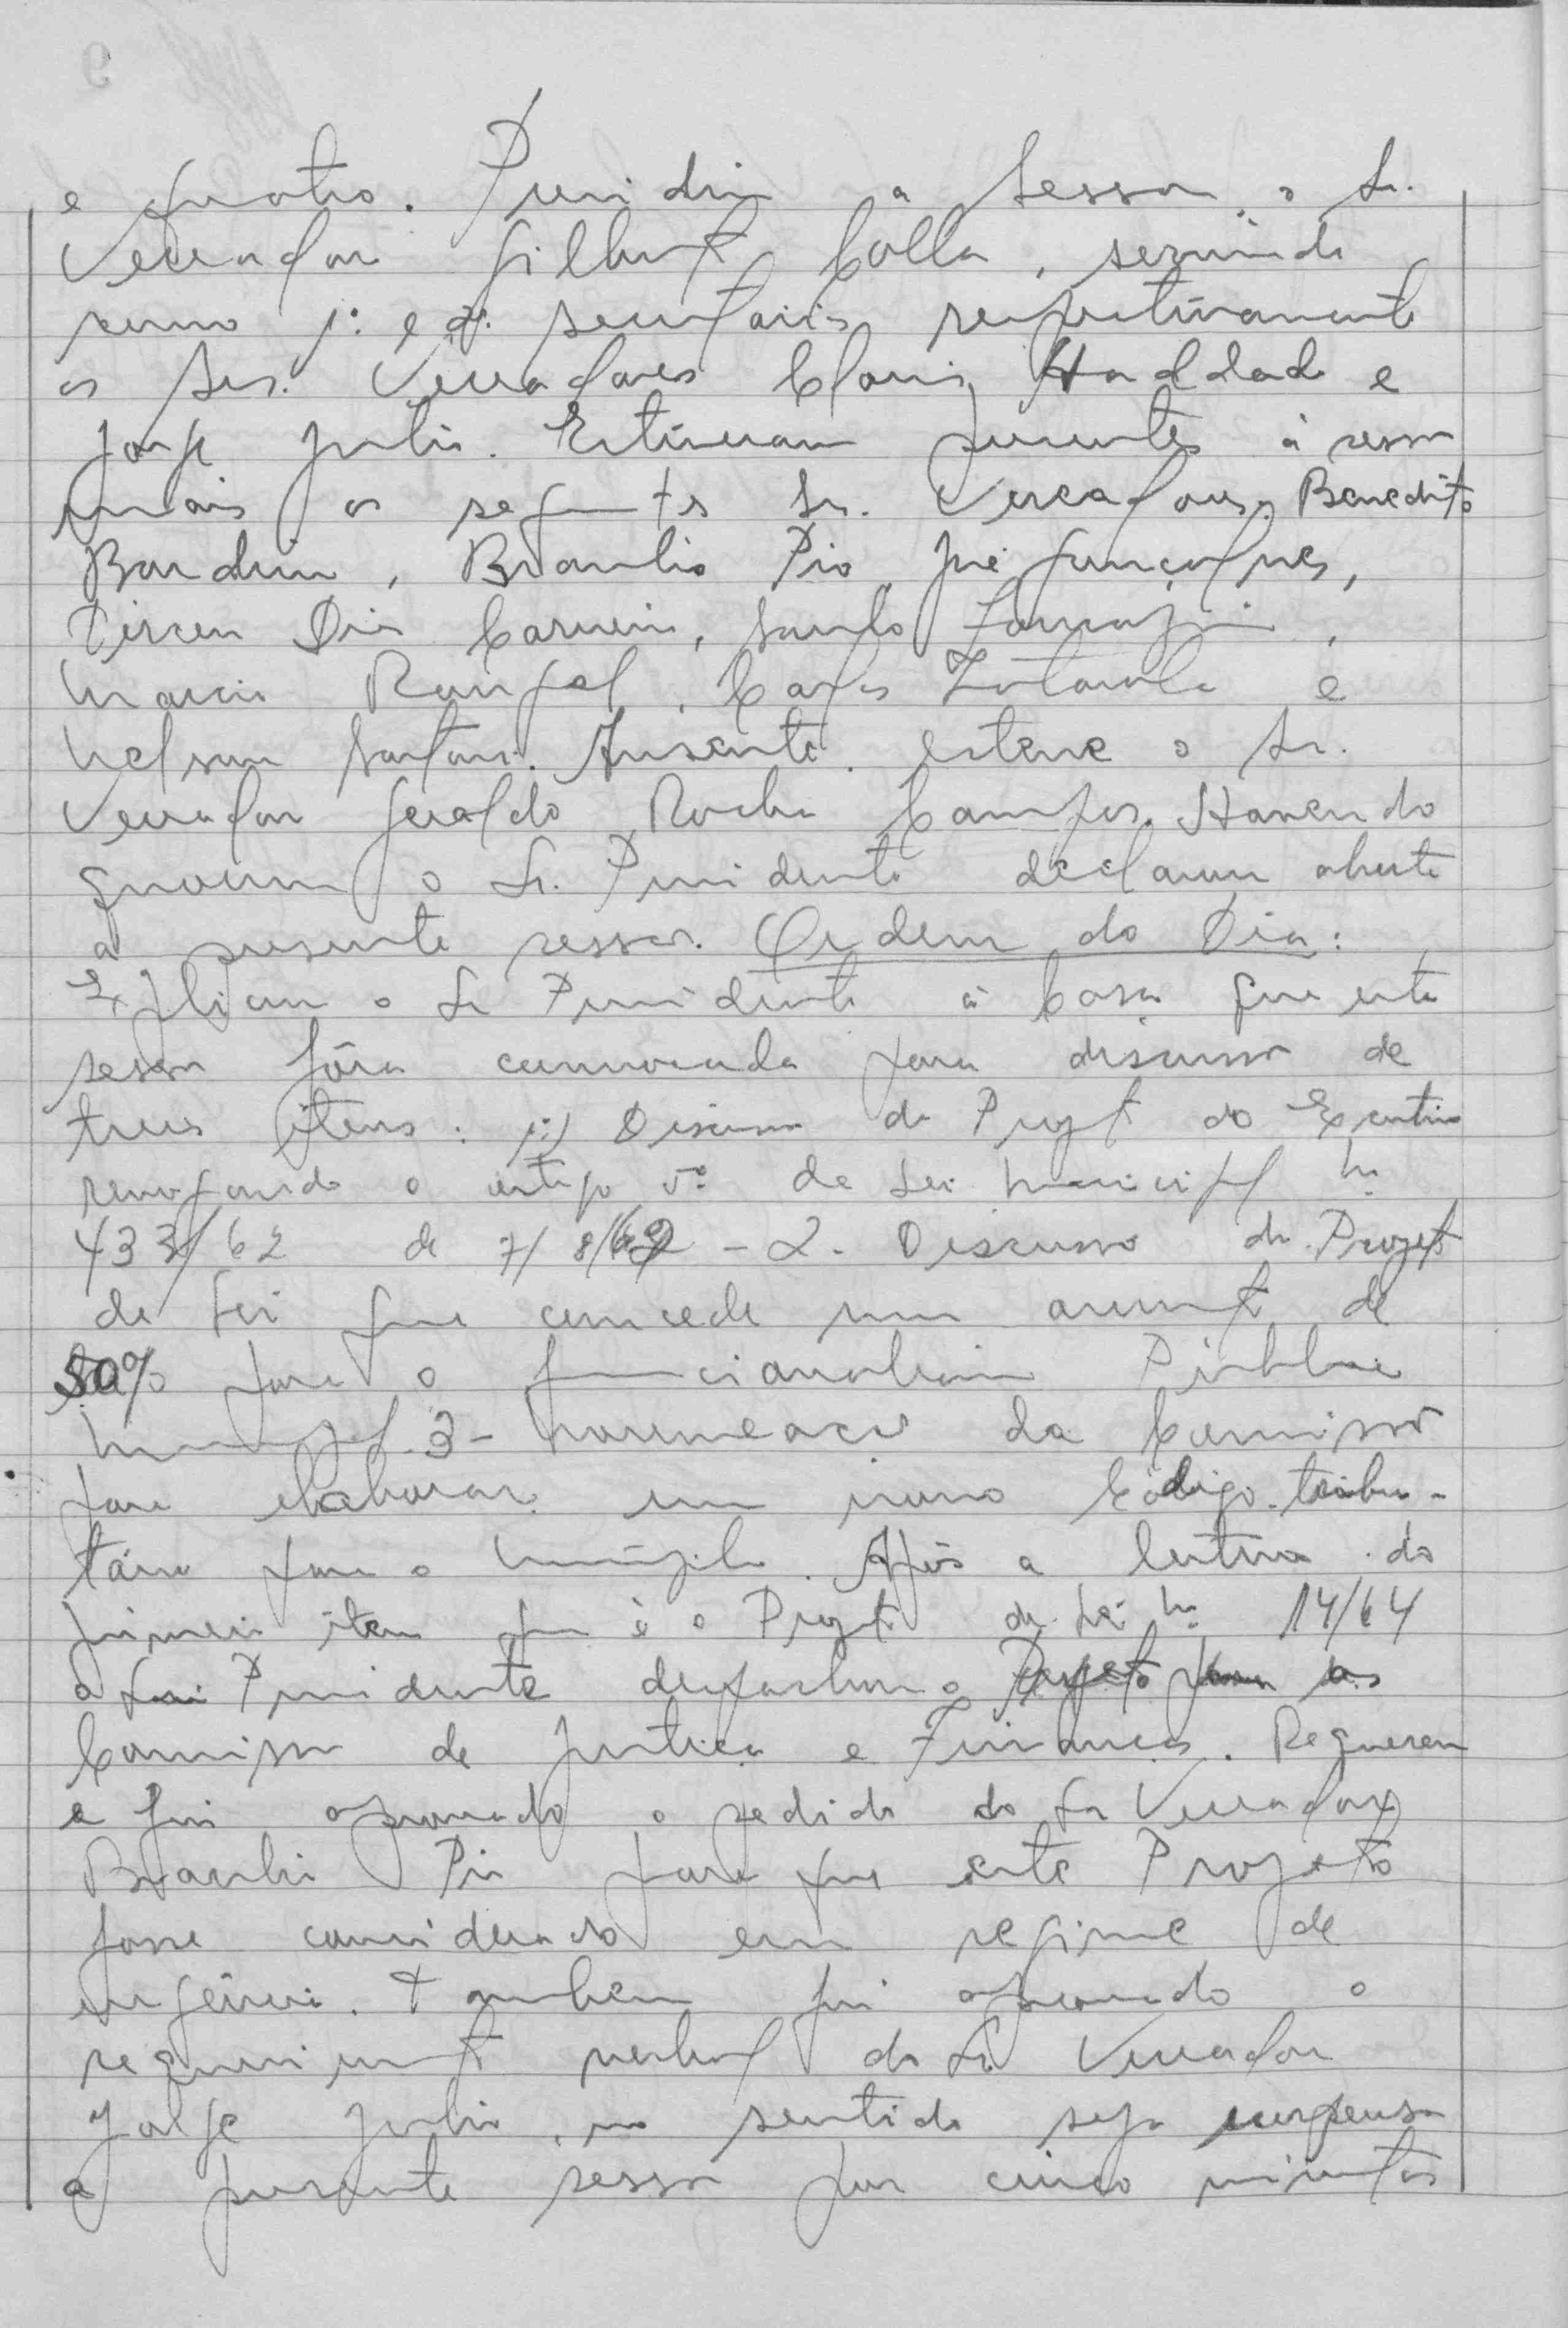 e quatro. Presidiu a Sessão o Sr.
Vereador Gilberto Colla, servindo
como 1º e 2º secretarios respectivamente
os Srs. Vereadores Cloris Haddad e
Jorge Julio. Estiveram presentes à sessão
mais os seguintes Sr. Vereadores. Benedito
Bardin, Braulio Pio, José Gonçalves,
Dirceu Dias Carneiro, Santo
Marcio Rangel, Carlos Zotarelli e
Nelson Santos. Ausente esteve o Sr.
Vereador Geraldo Rocha Campos. Havendo
quorum o Sr. Presidente declarou aberta
a presente sessão. Ordem do Dia:
Explicou o Sr Presidente à Casa que esta
sessão fôra convocada para discussão de
tres itens: 1º) Discussão do Projeto do Executivo
revogando o artigo 5º da Lei Municipal Nº
433/62 de 7/8/62 - 2. Discussão do Projeto
de Lei que concede um aumento de
50% para o funcionalismo Publico
Municipal. 3- Nomeação da Comissão
para elaborar um novo Código tribu-
tário para o Município. Após a leitura do
primeiro item que é o Projeto de Lei Nº 14/64
o Presidente despachou o Projeto para as
Comissão de Justiça e Finanças. Requereu
e foi aprovado o pedido do Sr Vereador
Braulio Pio para que este Projeto
fosse considerado em regime de
urgência. Tambem foi aprovado o
requerimento verbal do Sr. Vereador
Jorge Julio, no sentido seja suspensa
a presente sessão por cinco minutos